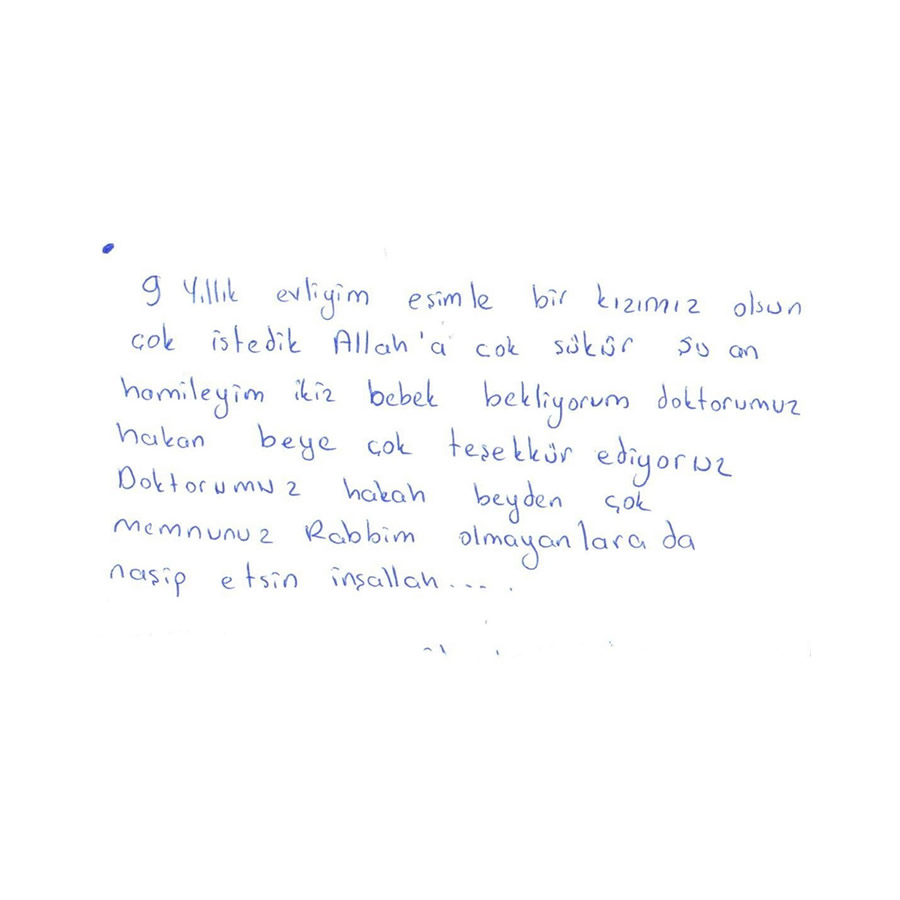 9 Yıllık evliyim eşimle bir kızımız olsun
çok istedik Allah'a çok şükür şu an
hamileyim ikiz bebek bekliyorum doktorumuz
hakan beye çok teşekkür ediyoruz
Doktorumuz hakan beyden çok
memnunuz Rabbim olmayanlara da
naşip etsin inşallah.... .